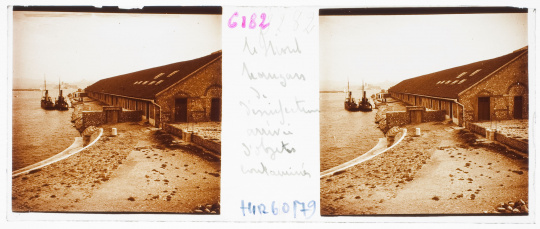 6182
Le Frioul
Hangars
de
Désinfection
arrivée
d'objets
contaminés